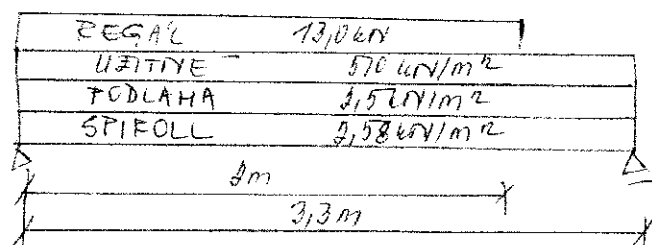 REGÁL 13,0 kN
UŽITNÉ 5,0 kN/m²
PODLAHA kN/m²
SPIROLL kN/m²
m
3,3 m